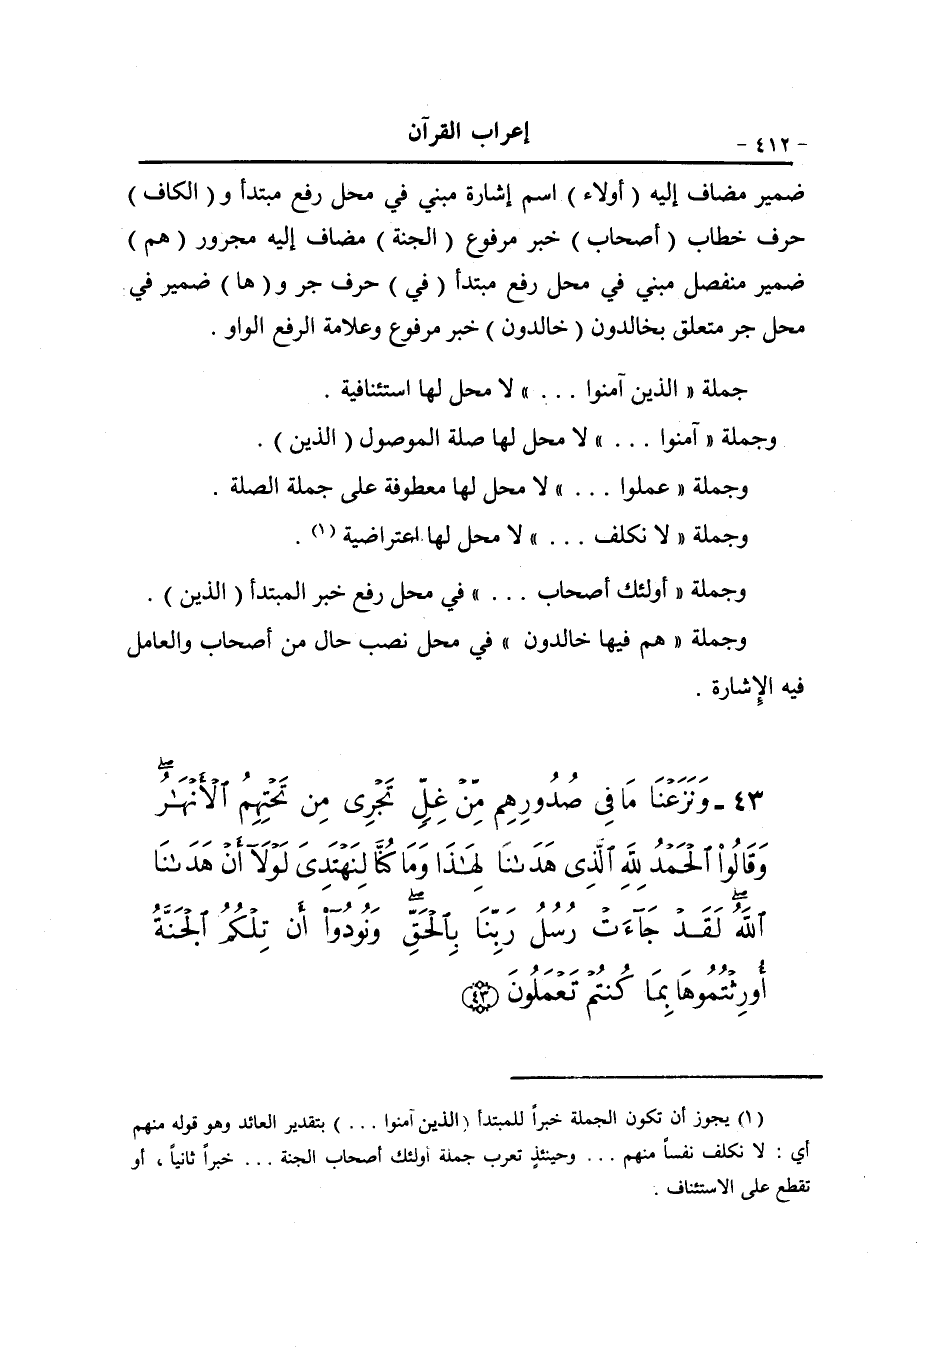 إعراب القرآن
- ٤١٢ -
ضمير مضاف إليه ( أولاء ) اسم إشارة مبني في محل رفع مبتدأ و ( الكاف )
حرف خطاب ( أصحاب ) خبر مرفوع ( الجنة ) مضاف إليه مجرور ( هم )
ضمير منفصل مبني في محل رفع مبتدأ ( في ) حرف جر و ( ها ) ضمير في
محل جر متعلق بخالدون ( خالدون ) خبر مرفوع وعلامة الرفع الواو .
جملة « الذين آمنوا . . . » لا محل لها استئنافية .
وجملة « آمنوا . . . » لا محل لها صلة الموصول ( الذين ) .
وجملة « عملوا . . . » لا محل لها معطوفة على جملة الصلة .
وجملة « لا نكلف . . . » لا محل لها اعتراضية (١) .
وجملة « أولئك أصحاب . . . » في محل رفع خبر المبتدأ ( الذين ) .
وجملة « هم فيها خالدون » في محل نصب حال من أصحاب والعامل
فيه الإشارة .
٤٣ - وَنَزَعْنَا مَا فِى صُدُورِهِم مِّنْ غِلٍّ تَجْرِى مِن تَحْتِهِمُ ٱلْأَنْهَٰرُ ۖ
وَقَالُوا۟ ٱلْحَمْدُ لِلَّهِ ٱلَّذِى هَدَىٰنَا لِهَٰذَا وَمَا كُنَّا لِنَهْتَدِىَ لَوْلَآ أَنْ هَدَىٰنَا
ٱللَّهُ ۖ لَقَدْ جَآءَتْ رُسُلُ رَبِّنَا بِٱلْحَقِّ ۖ وَنُودُوٓا۟ أَن تِلْكُمُ ٱلْجَنَّةُ
أُورِثْتُمُوهَا بِمَا كُنتُمْ تَعْمَلُونَ (٤٣)
(١) يجوز أن تكون الجملة خبراً للمبتدأ (الذين آمنوا . . . ) بتقدير العائد وهو قوله منهم
أي : لا نكلف نفساً منهم . . . وحينئذٍ تعرب جملة أولئك أصحاب الجنة . . . خبراً ثانياً ، أو
تقطع على الاستئناف .